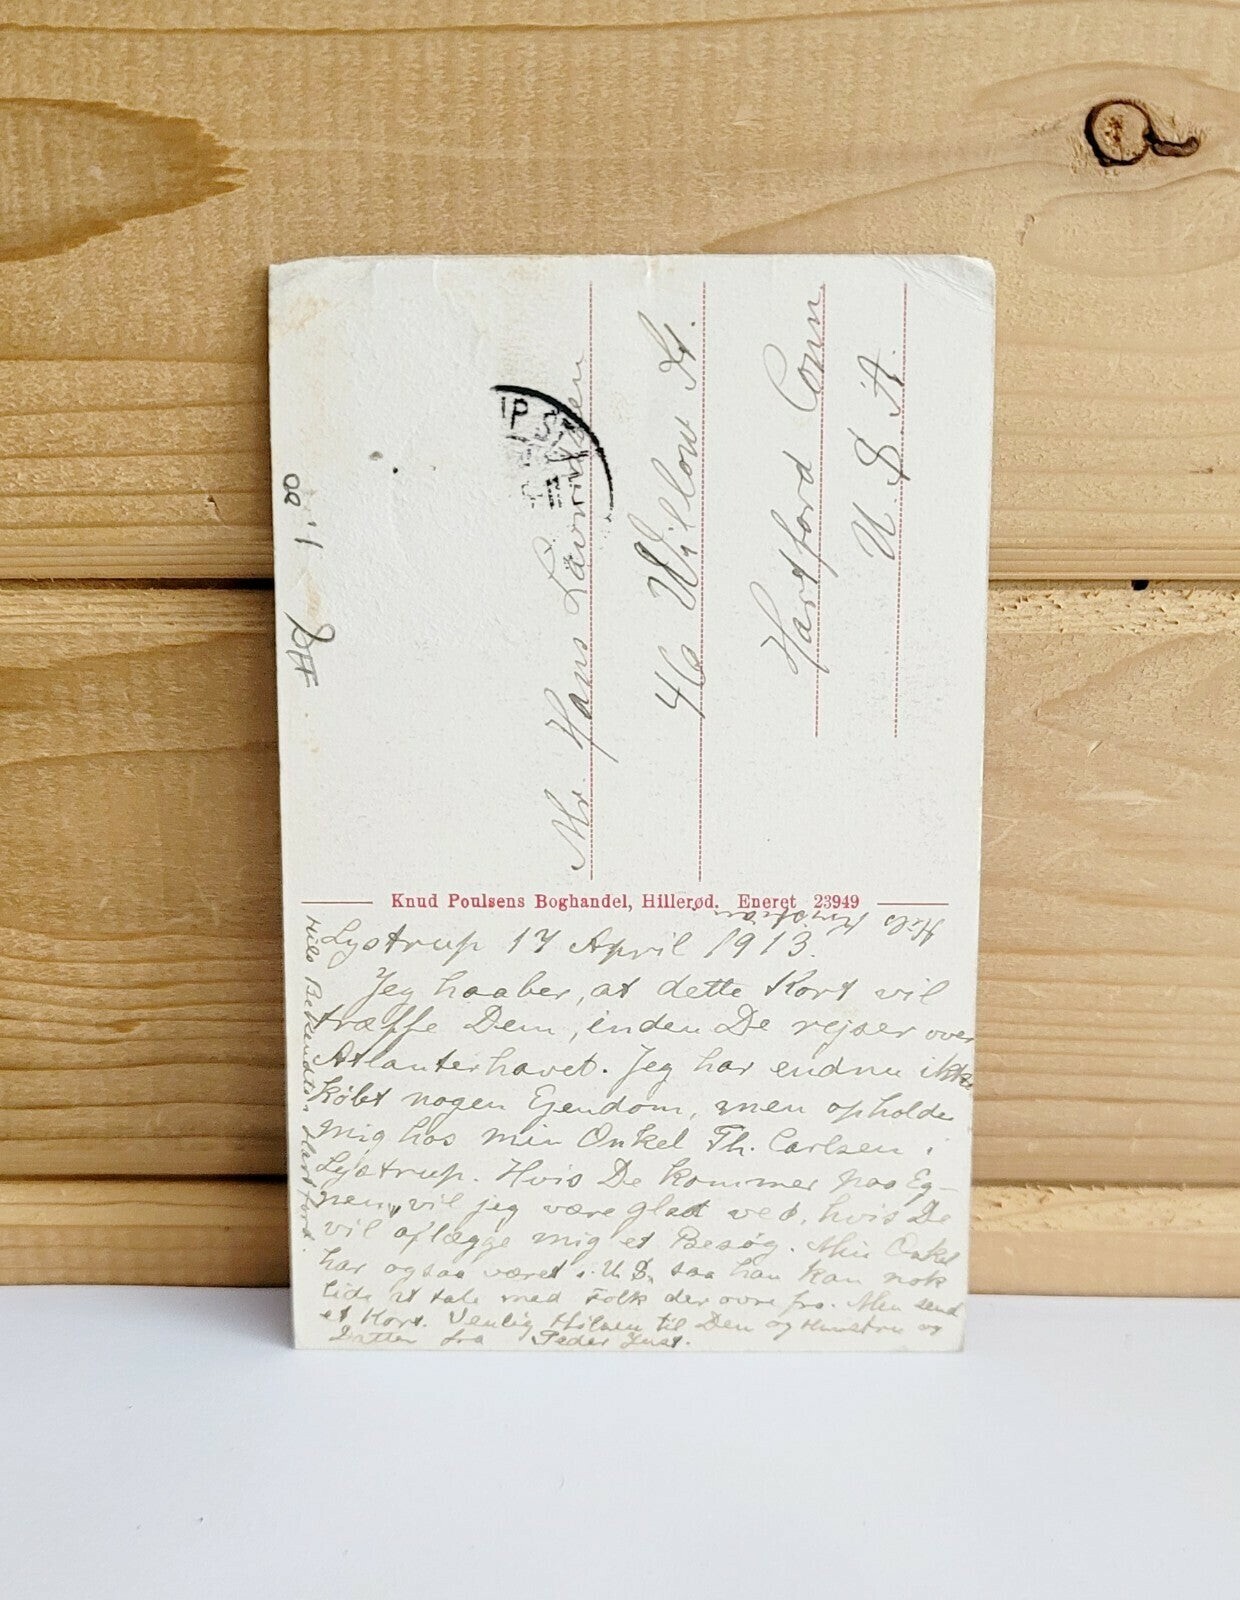 Mr. Hans Lavridsen
46 Willow St.
Hartford Conn.
U. S. A.
1.00
Knud Poulsens Boghandel, Hillerød. Eneret 23949
Hils
Lystrup 17 April 1913.
Jeg haaber, at dette Kort vil
træffe Dem, inden De rejser over
Atlanterhavet. Jeg har endnu ikke
købt nogen Ejendom, men opholder
mig hos min Onkel Th. Carlsen i
Lystrup. Hvis De kommer paa Eg-
nen, vil jeg være glad ved, hvis De
vil aflægge mig et Besøg. Min Onkel
har ogsaa været i U. S. saa han kan nok
lide at tale med Folk der ovre fra. Men send
et Kort. Venlig Hilsen til Dem og Hustru og
Datter fra Peder Just.
Hils Bekendte i Hartford.